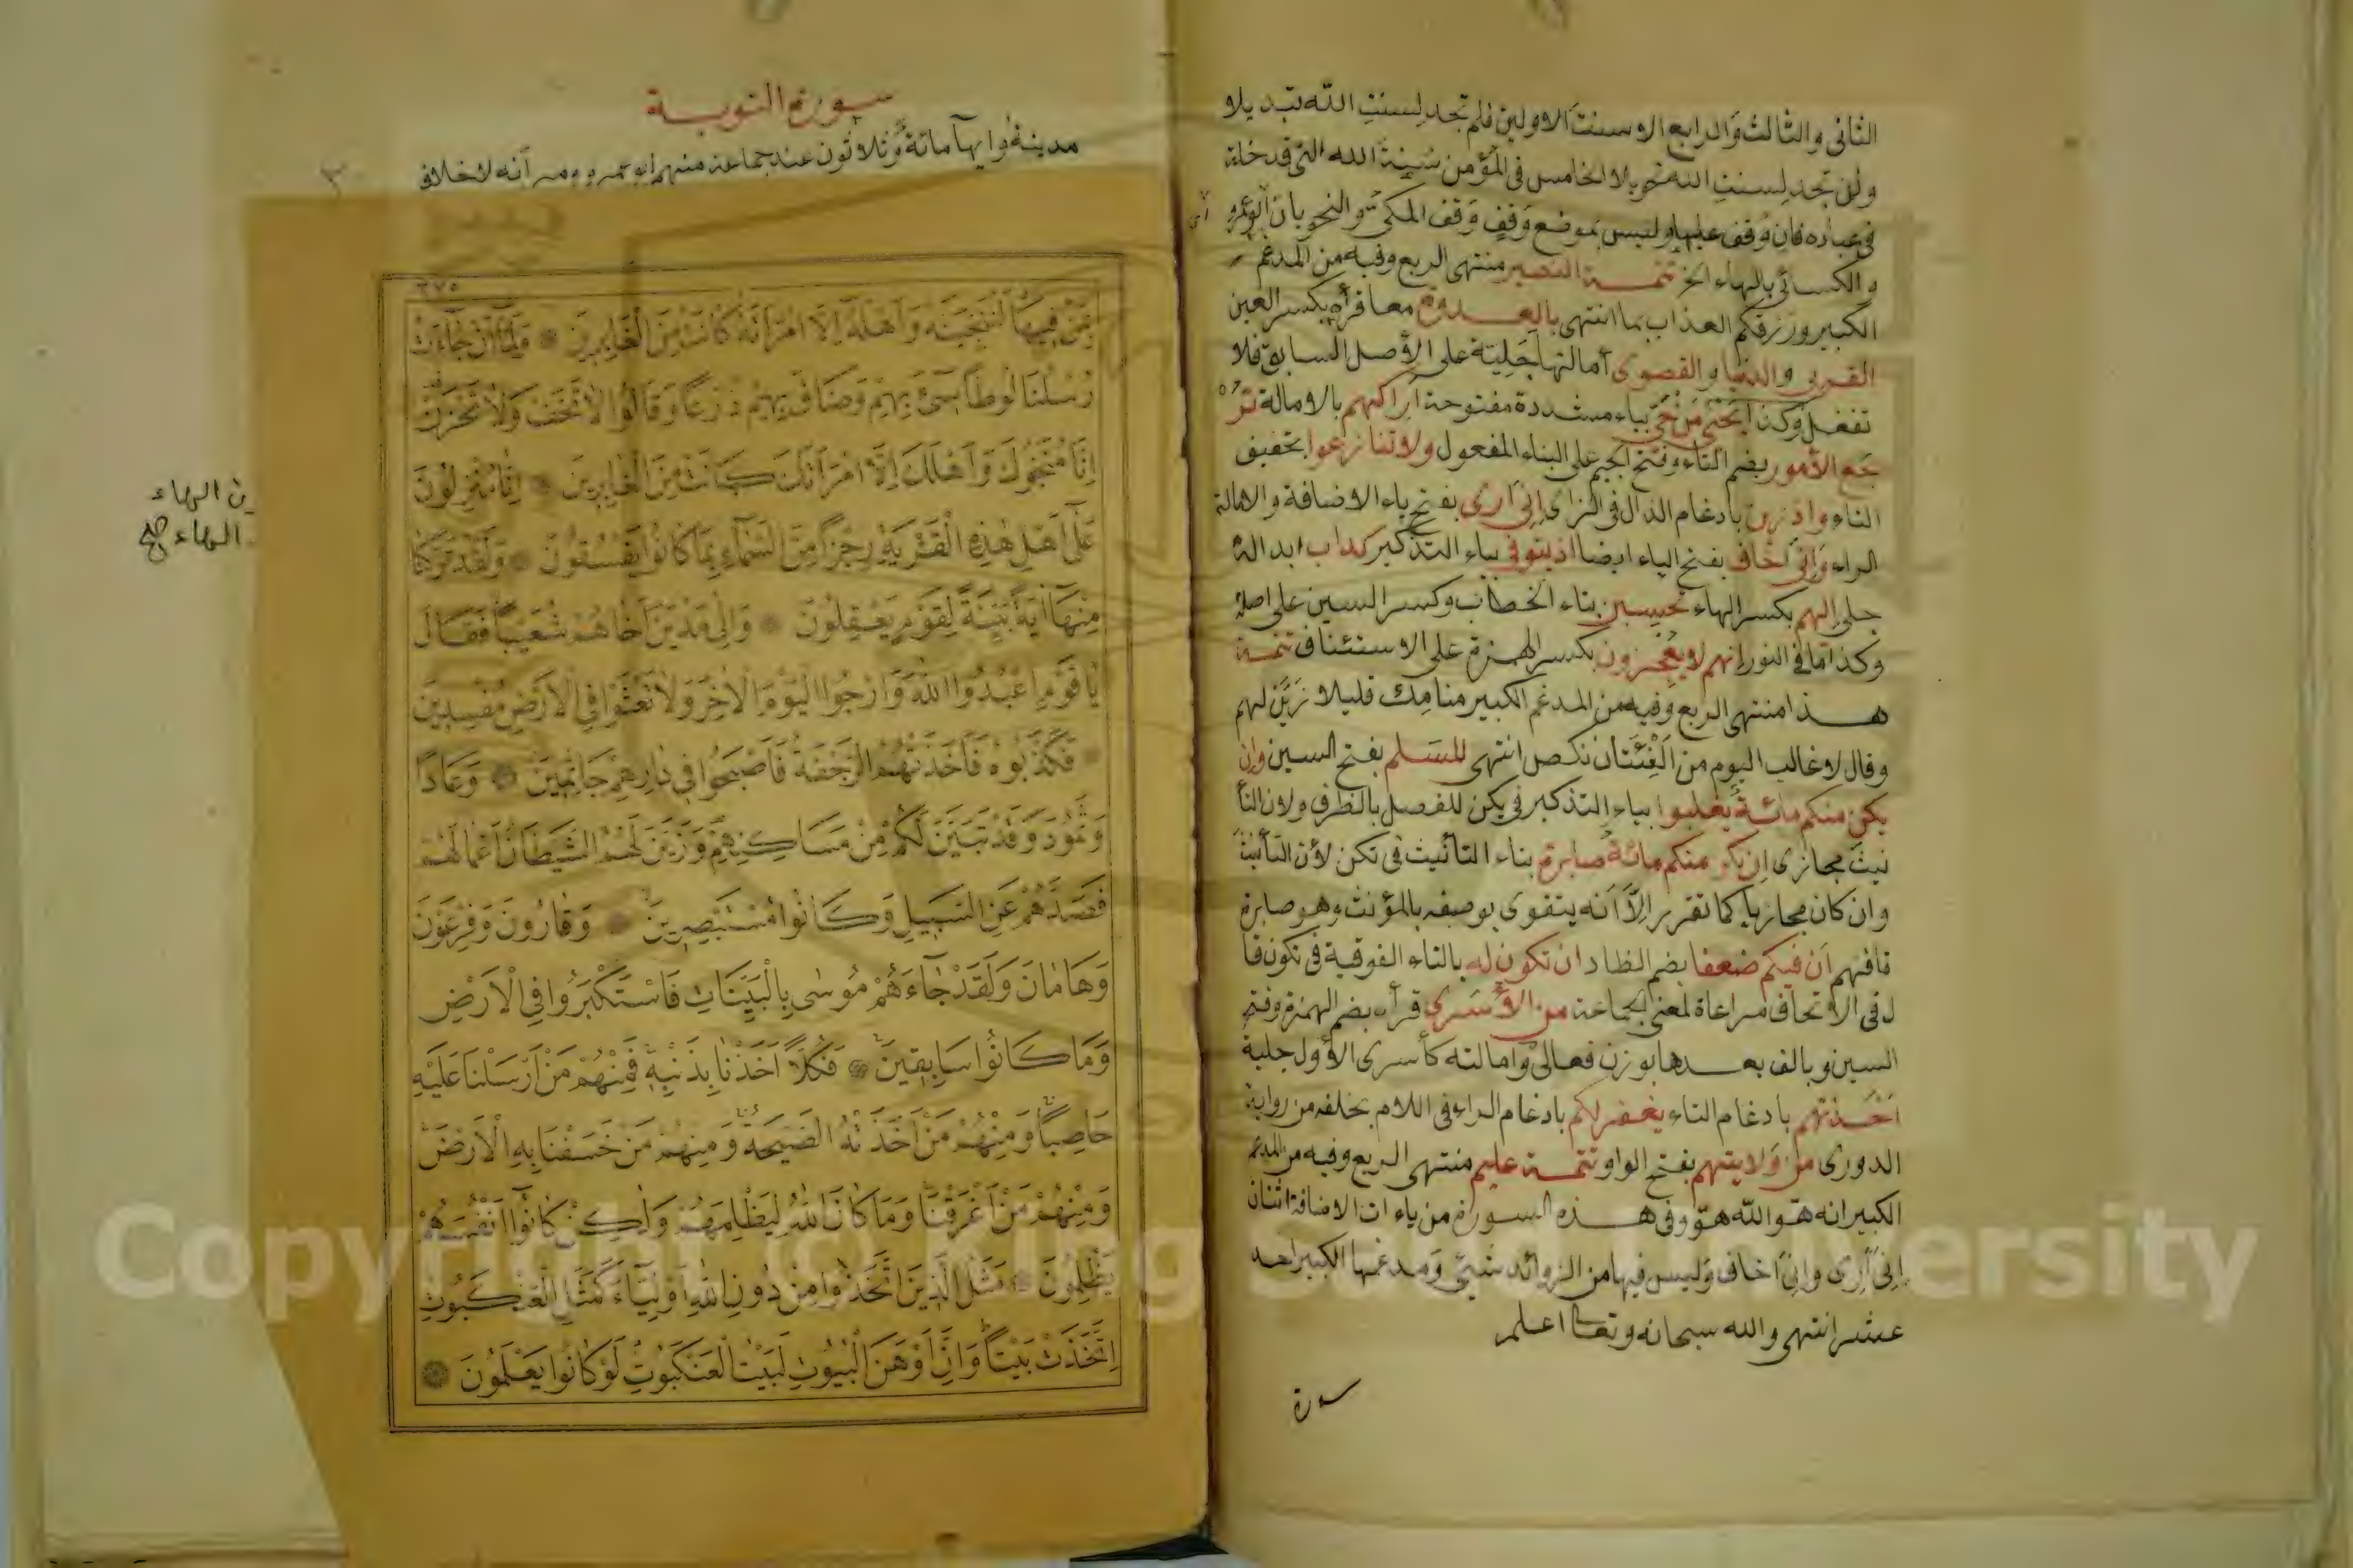 الثانى والثالث والرابع الا سنت الاولين فلم تجد لسنت الله تبديلا
ولن تجد لسنت الله تحويلا الخامس فى المؤمن سنة الله التى قد خلت
فى عباده فان وقف عليها وليس بموضع وقف وقف المكى والنحويان ابو عمرو
والكسائى بالهاء الخ تتمـة النصير منتهى الربع وفيه من المدغم
الكبير ورزقكم العذاب بما انتهى بالعدوة معا قرأه بكسر العين
القربى والدنيا والقصوى أمالتها جلية على الأصل السابق فلا
تغفل وكذا يحيى من حيي بياء مشددة مفتوحة اراكهم بالامالة تر
جع الأمور بضم التاء وفتح الجيم على البناء المفعول ولا تنازعوا بتخفيف
التاء واذ زين بادغام الذال فى الزاى إنى أرى بفتح ياء الاضافة والامالة
الراء وإنى أخاف بفتح الياء ايضا اذ يتوفى بياء التذكير كداب ابداله
جلى إلهم بكسر الهاء تحسبن بتاء الخطاب وكسر السين على اصله
وكذا ما فى النور إنهم لا يعجزون بكسر الهمزة على الاستئناف تتمـة
هـذا منتهى الربع وفيه من المدغم الكبير منامك قليلا زين لهم
وقال لا غالب اليوم من الفئتان نكص انتهى للسلم بفتح السين وإن
يكن منكم مائة يغلبوا بياء التذكير فى يكن للفصل بالظرف ولان التأ
نيث مجازى إن تكن منكم مائة صابرة بتاء التأنيث فى تكن لأن التأنيث
وان كان مجازيا كما تقرر إلا أنه يتقوى بوصفه بالمؤنث وهو صابرة
فافهم أن فيكم ضعفا بضم الظاد ان تكون له بالتاء الفوقية فى تكون قا
ل فى الاتحاف مراعاة لمعنى الجماعة من الأسرى قرأه بضم الهمزة وفتح
السين وبالف بعـدها بوزن فعالى وامالته كأسرى الأول جلية
أخـذتم بادغام التاء يغفر لكم بادغام الراء فى اللام بخلفه من رواية
الدورى من ولايتهم بفتح الواو تتمـة عليم منتهى الربع وفيه من المدغم
الكبير انه هو الله هو وفى هـذه السورة من ياءات الاضافة اثنان
إنى أرى وإنى أخاف وليس فيها من الزوائد شيئ ومدغمها الكبير احد
عشر انتهى والله سبحانه وتعالى اعلم
سورة
سورة التوبـة
مدينة وايها مائة وثلاثون عند جماعة منهم ابو عمرو انه لاخلاف
ن الهاء
الهاء صح
٣٧٥
بِمَنْ فِيهَا لَنُنَجِّيَنَّهُ وَأَهْلَهُ إِلَّا امْرَأَتَهُ كَانَتْ مِنَ الْغَابِرِينَ وَلَمَّا أَنْ جَاءَتْ
رُسُلُنَا لُوطًا سِيءَ بِهِمْ وَضَاقَ بِهِمْ ذَرْعًا وَقَالُوا لَا تَخَفْ وَلَا تَحْزَنْ
إِنَّا مُنَجُّوكَ وَأَهْلَكَ إِلَّا امْرَأَتَكَ كَانَتْ مِنَ الْغَابِرِينَ إِنَّا مُنْزِلُونَ
عَلَى أَهْلِ هَذِهِ الْقَرْيَةِ رِجْزًا مِنَ السَّمَاءِ بِمَا كَانُوا يَفْسُقُونَ وَلَقَدْ تَرَكْنَا
مِنْهَا آيَةً بَيِّنَةً لِقَوْمٍ يَعْقِلُونَ وَإِلَى مَدْيَنَ أَخَاهُمْ شُعَيْبًا فَقَالَ
يَا قَوْمِ اعْبُدُوا اللَّهَ وَارْجُوا الْيَوْمَ الْآخِرَ وَلَا تَعْثَوْا فِي الْأَرْضِ مُفْسِدِينَ
فَكَذَّبُوهُ فَأَخَذَتْهُمُ الرَّجْفَةُ فَأَصْبَحُوا فِي دَارِهِمْ جَاثِمِينَ وَعَادًا
وَثَمُودَ وَقَدْ تَبَيَّنَ لَكُمْ مِنْ مَسَاكِنِهِمْ وَزَيَّنَ لَهُمُ الشَّيْطَانُ أَعْمَالَهُمْ
فَصَدَّهُمْ عَنِ السَّبِيلِ وَكَانُوا مُسْتَبْصِرِينَ وَقَارُونَ وَفِرْعَوْنَ
وَهَامَانَ وَلَقَدْ جَاءَهُمْ مُوسَى بِالْبَيِّنَاتِ فَاسْتَكْبَرُوا فِي الْأَرْضِ
وَمَا كَانُوا سَابِقِينَ فَكُلًّا أَخَذْنَا بِذَنْبِهِ فَمِنْهُمْ مَنْ أَرْسَلْنَا عَلَيْهِ
حَاصِبًا وَمِنْهُمْ مَنْ أَخَذَتْهُ الصَّيْحَةُ وَمِنْهُمْ مَنْ خَسَفْنَا بِهِ الْأَرْضَ
وَمِنْهُمْ مَنْ أَغْرَقْنَا وَمَا كَانَ اللَّهُ لِيَظْلِمَهُمْ وَلَكِنْ كَانُوا أَنْفُسَهُمْ
يَظْلِمُونَ مَثَلُ الَّذِينَ اتَّخَذُوا مِنْ دُونِ اللَّهِ أَوْلِيَاءَ كَمَثَلِ الْعَنْكَبُوتِ
اتَّخَذَتْ بَيْتًا وَإِنَّ أَوْهَنَ الْبُيُوتِ لَبَيْتُ الْعَنْكَبُوتِ لَوْ كَانُوا يَعْلَمُونَ
Copyright © King Saud University